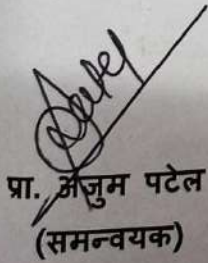 प्रा. अंजुम पटेल
(समन्वयक)